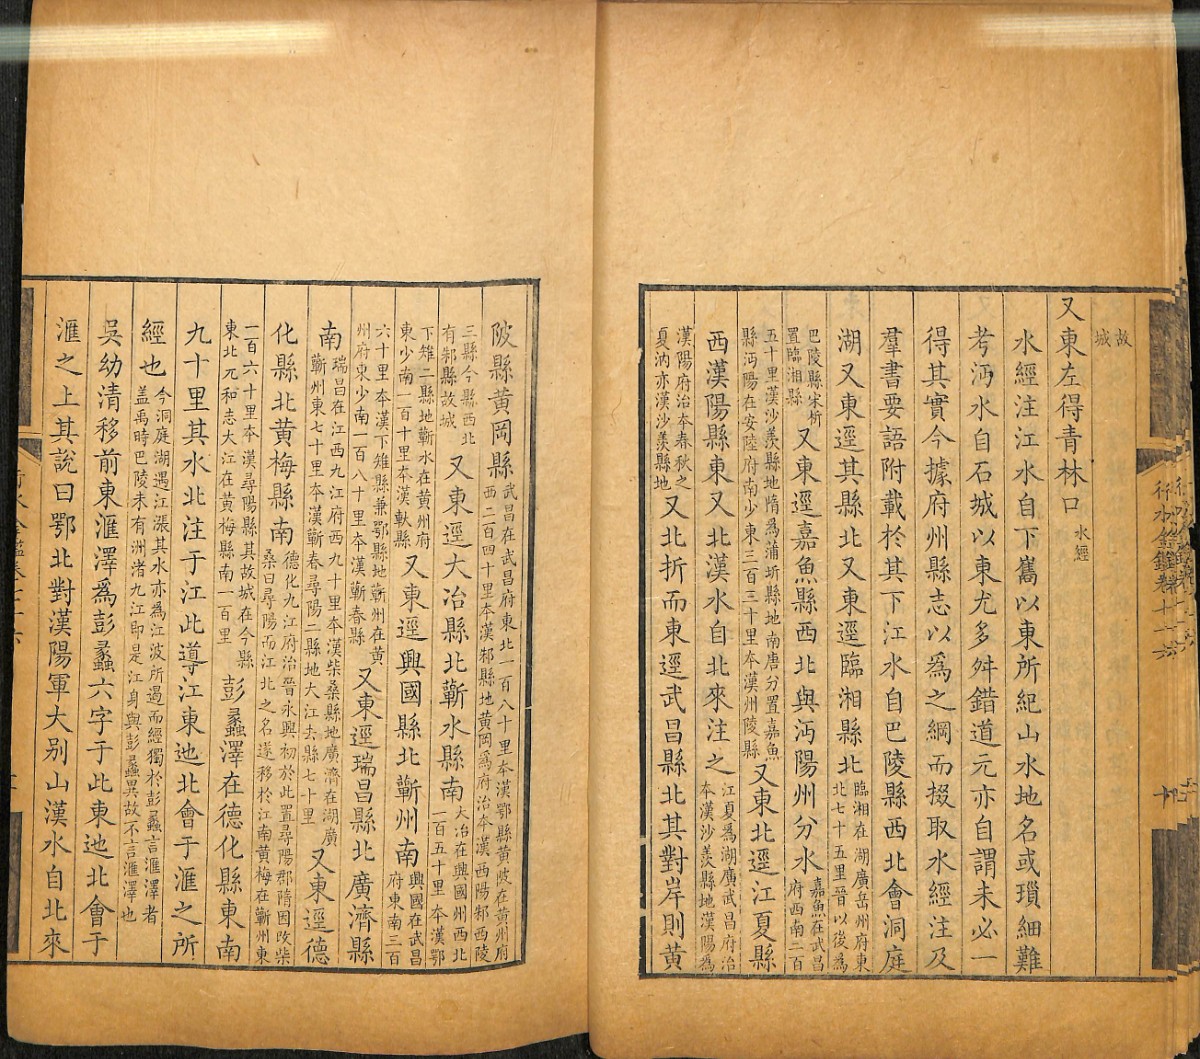 故
城
又東左得青林口水經
水經注江水自下雋以東所紀山水地名或瑣細難
考沔水自石城以東尤多舛錯道元亦自謂未必一
得其實今據府州縣志以爲之綱而掇取水經注及
羣書要語附載於其下江水自巴陵縣西北會洞庭
湖又東逕其縣北又東逕臨湘縣北臨湘在湖廣岳州府東北七十五里晉以後爲
巴陵縣宋析置臨湘縣又東逕嘉魚縣西北與沔陽州分水嘉魚在武昌府西南二百
五十里漢沙羨縣地隋爲蒲圻縣地南唐分置嘉魚縣沔陽在安陸府南少東三百三十里本漢州陵縣又東北逕江夏縣
西漢陽縣東又北漢水自北來注之江夏爲湖廣武昌府治本漢沙羨縣地漢陽爲
漢陽府治本春秋之夏汭亦漢沙羨縣地又北折而東逕武昌縣北其對岸則黄
陂縣黄岡縣武昌在武昌府東北一百八十里本漢鄂縣黄陂在黄州府西二百四十里本漢邾縣地黄岡爲府治本漢西陽邾西陵
三縣今縣西北有邾縣故城又東逕大冶縣北蘄水縣南大冶在興國州西北一百五十里本漢鄂
下雉二縣地蘄水在黄州府東少南一百十里本漢軑縣又東逕興國縣北蘄州南興國在武昌府東南三百
六十里本漢下雉縣兼鄂縣地蘄州在黄州府東少南一百八十里本漢蘄春縣又東逕瑞昌縣北廣濟縣
南瑞昌在江西九江府西九十里本漢柴桑縣地廣濟在湖廣蘄州東七十里本漢蘄春尋陽二縣地大江去縣七十里又東逕德
化縣北黄梅縣南德化九江府治晉永興初於此置尋陽郡隋因改柴桑曰尋陽而江北之名遂移於江南黄梅在蘄州東
一百六十里本漢尋陽縣其故城在今縣東北元和志大江在黄梅縣南一百里彭蠡澤在德化縣東南
九十里其水北注于江此導江東迆北會于滙之所
經也今洞庭湖遇江漲其水亦爲江波所遏而經獨於彭蠡言滙澤者盖禹時巴陵未有洲渚九江即是江身與彭蠡異故不言滙澤也
吳幼清移前東滙澤爲彭蠡六字于此東迆北會于
滙之上其說曰鄂北對漢陽軍大别山漢水自北來